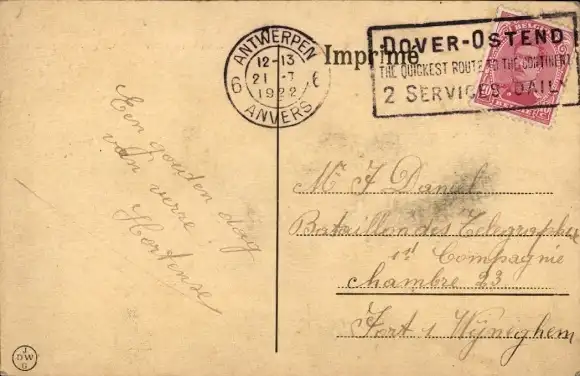 ANTWERPEN
12-13
21
1922
6 6
ANVERS
Imprimé
DOVER-OSTEND
THE QUICKEST ROUTE TO THE CONTINENT
2 SERVICES DAIL
BELGI
Een gouden dag
van verre
Hortense
Mr J Daniel
Bataillon des Telegraphie
1st Compagnie
chambre 23
Fort 1 Wyneghem
J
DW